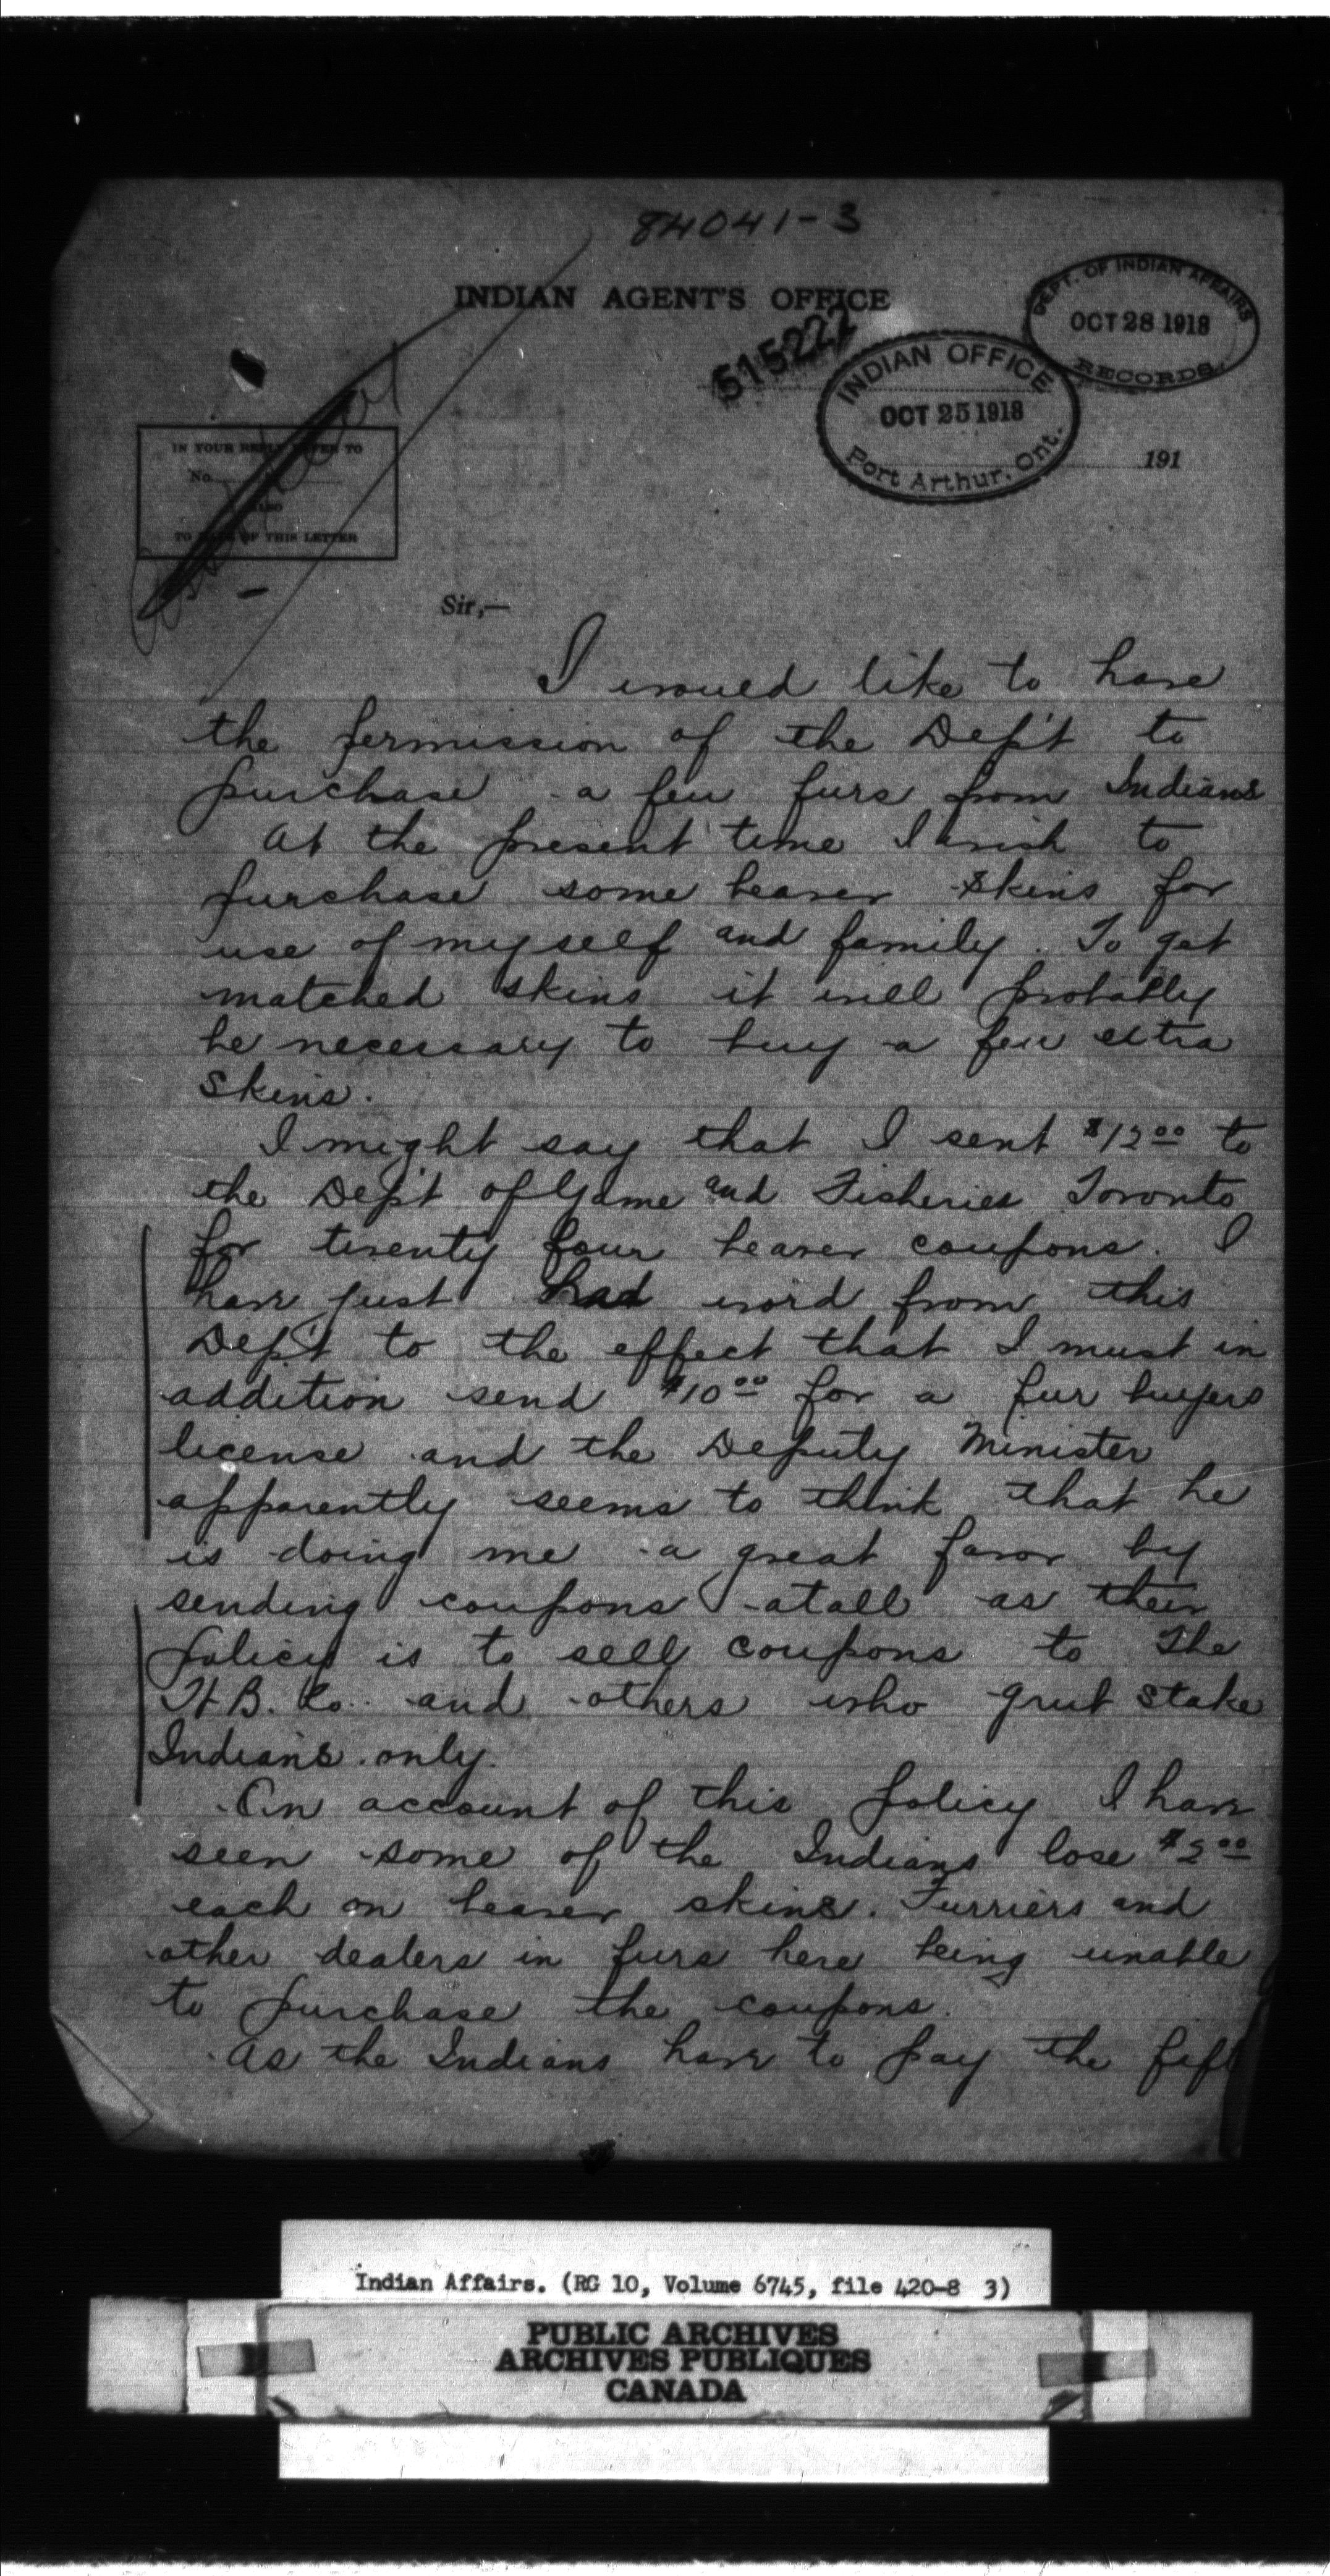 84041-3
INDIAN AGENT'S OFFICE
515222
DEPT. OF INDIAN AFFAIRS
OCT 28 1918
RECORDS.
INDIAN OFFICE
OCT 25 1918
Port Arthur, Ont.
191
IN YOUR REPLY REFER TO
No.
ALSO
TO DATE OF THIS LETTER
Sir,—
I would like to have
the permission of the Dep't to
purchase a few furs from Indians
At the present time I wish to
purchase some beaver skins for
use of myself and family. To get
matched skins it will probably
be necessary to buy a few extra
skins.
I might say that I sent $12.00 to
the Dep't of Game and Fisheries Toronto
for twenty four beaver coupons. I
have just had word from this
Dep't to the effect that I must in
addition send $10.00 for a fur buyers
license and the Deputy Minister
apparently seems to think that he
is doing me a great favor by
sending coupons atall as their
policy is to sell coupons to the
H.B. Co. and others who grub stake
Indians only.
On account of this policy I have
seen some of the Indians lose $2.00
each on beaver skins. Furriers and
other dealers in furs here being unable
to purchase the coupons.
As the Indians have to pay the
Indian Affairs. (RG 10, Volume 6745, file 420-8 3)
PUBLIC ARCHIVES
ARCHIVES PUBLIQUES
CANADA